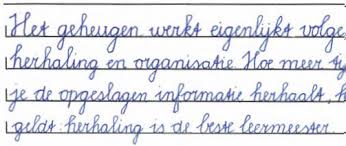 Het geheugen werkt eigenlijkt volge
herhaling en organisatie. Hoe meer tij
je de opgeslagen informatie herhaalt, h
geldt: herhaling is de beste leermeester.